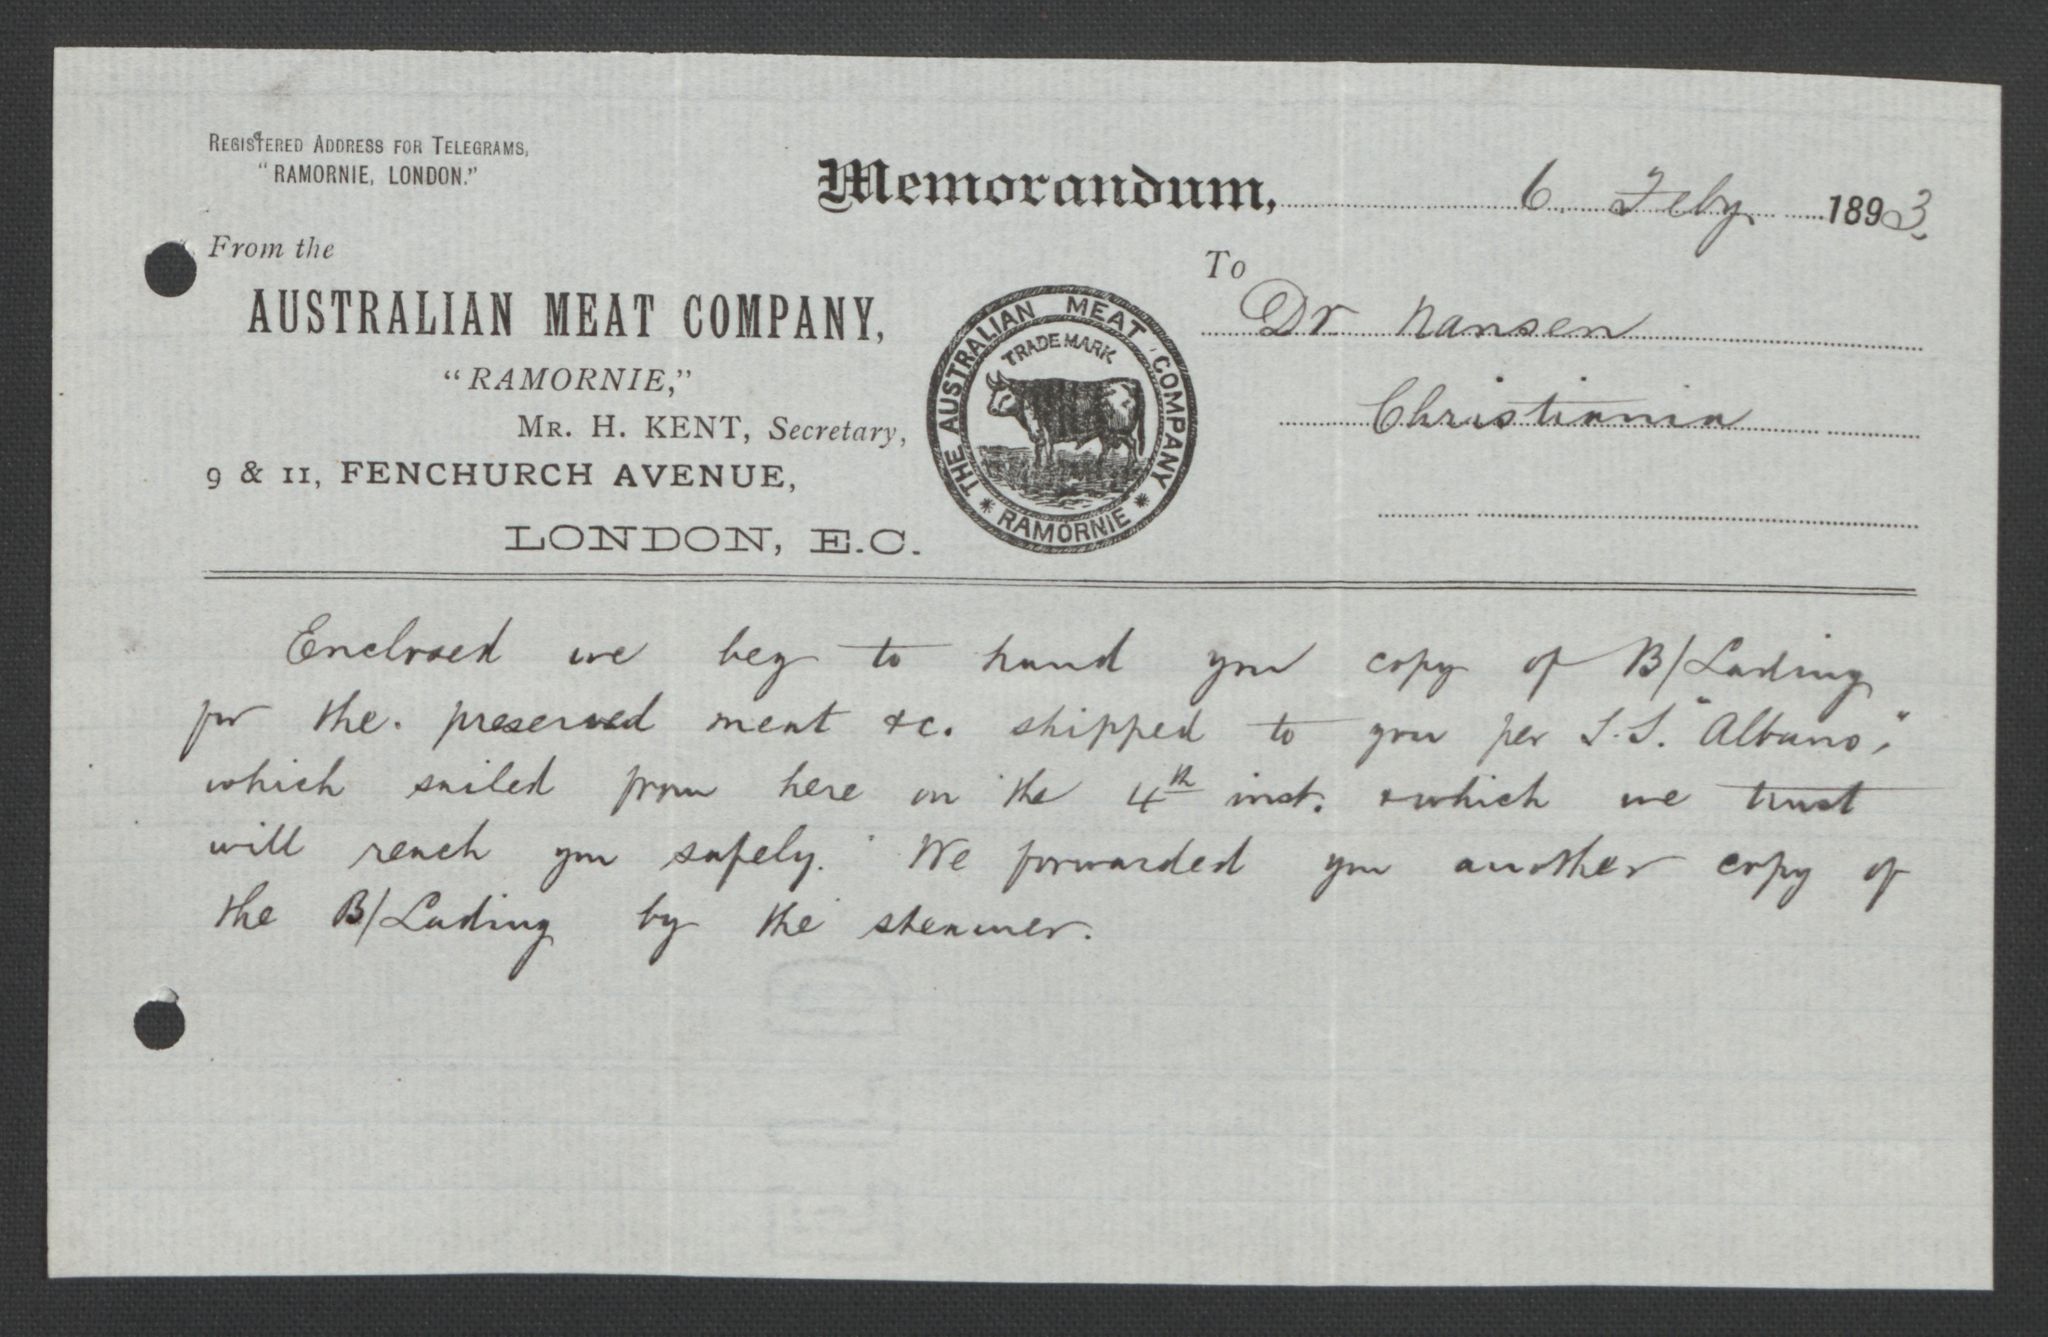 Registered Address for Telegrams,
"RAMORNIE, LONDON."
Memorandum, 6. Feby. 1893.
From the
AUSTRALIAN MEAT COMPANY,
"RAMORNIE,"
Mr. H. KENT, Secretary,
9 & 11, FENCHURCH AVENUE,
LONDON, E.C.
THE AUSTRALIAN MEAT COMPANY
TRADE MARK
* RAMORNIE *
To
Dr Nansen
Christiania
Enclosed we beg to hand you copy of B/Lading
for the preserved meat &c. shipped to you per S.S. "Albano,"
which sailed from here on the 4th inst. & which we trust
will reach you safely. We forwarded you another copy of
the B/Lading by the steamer.